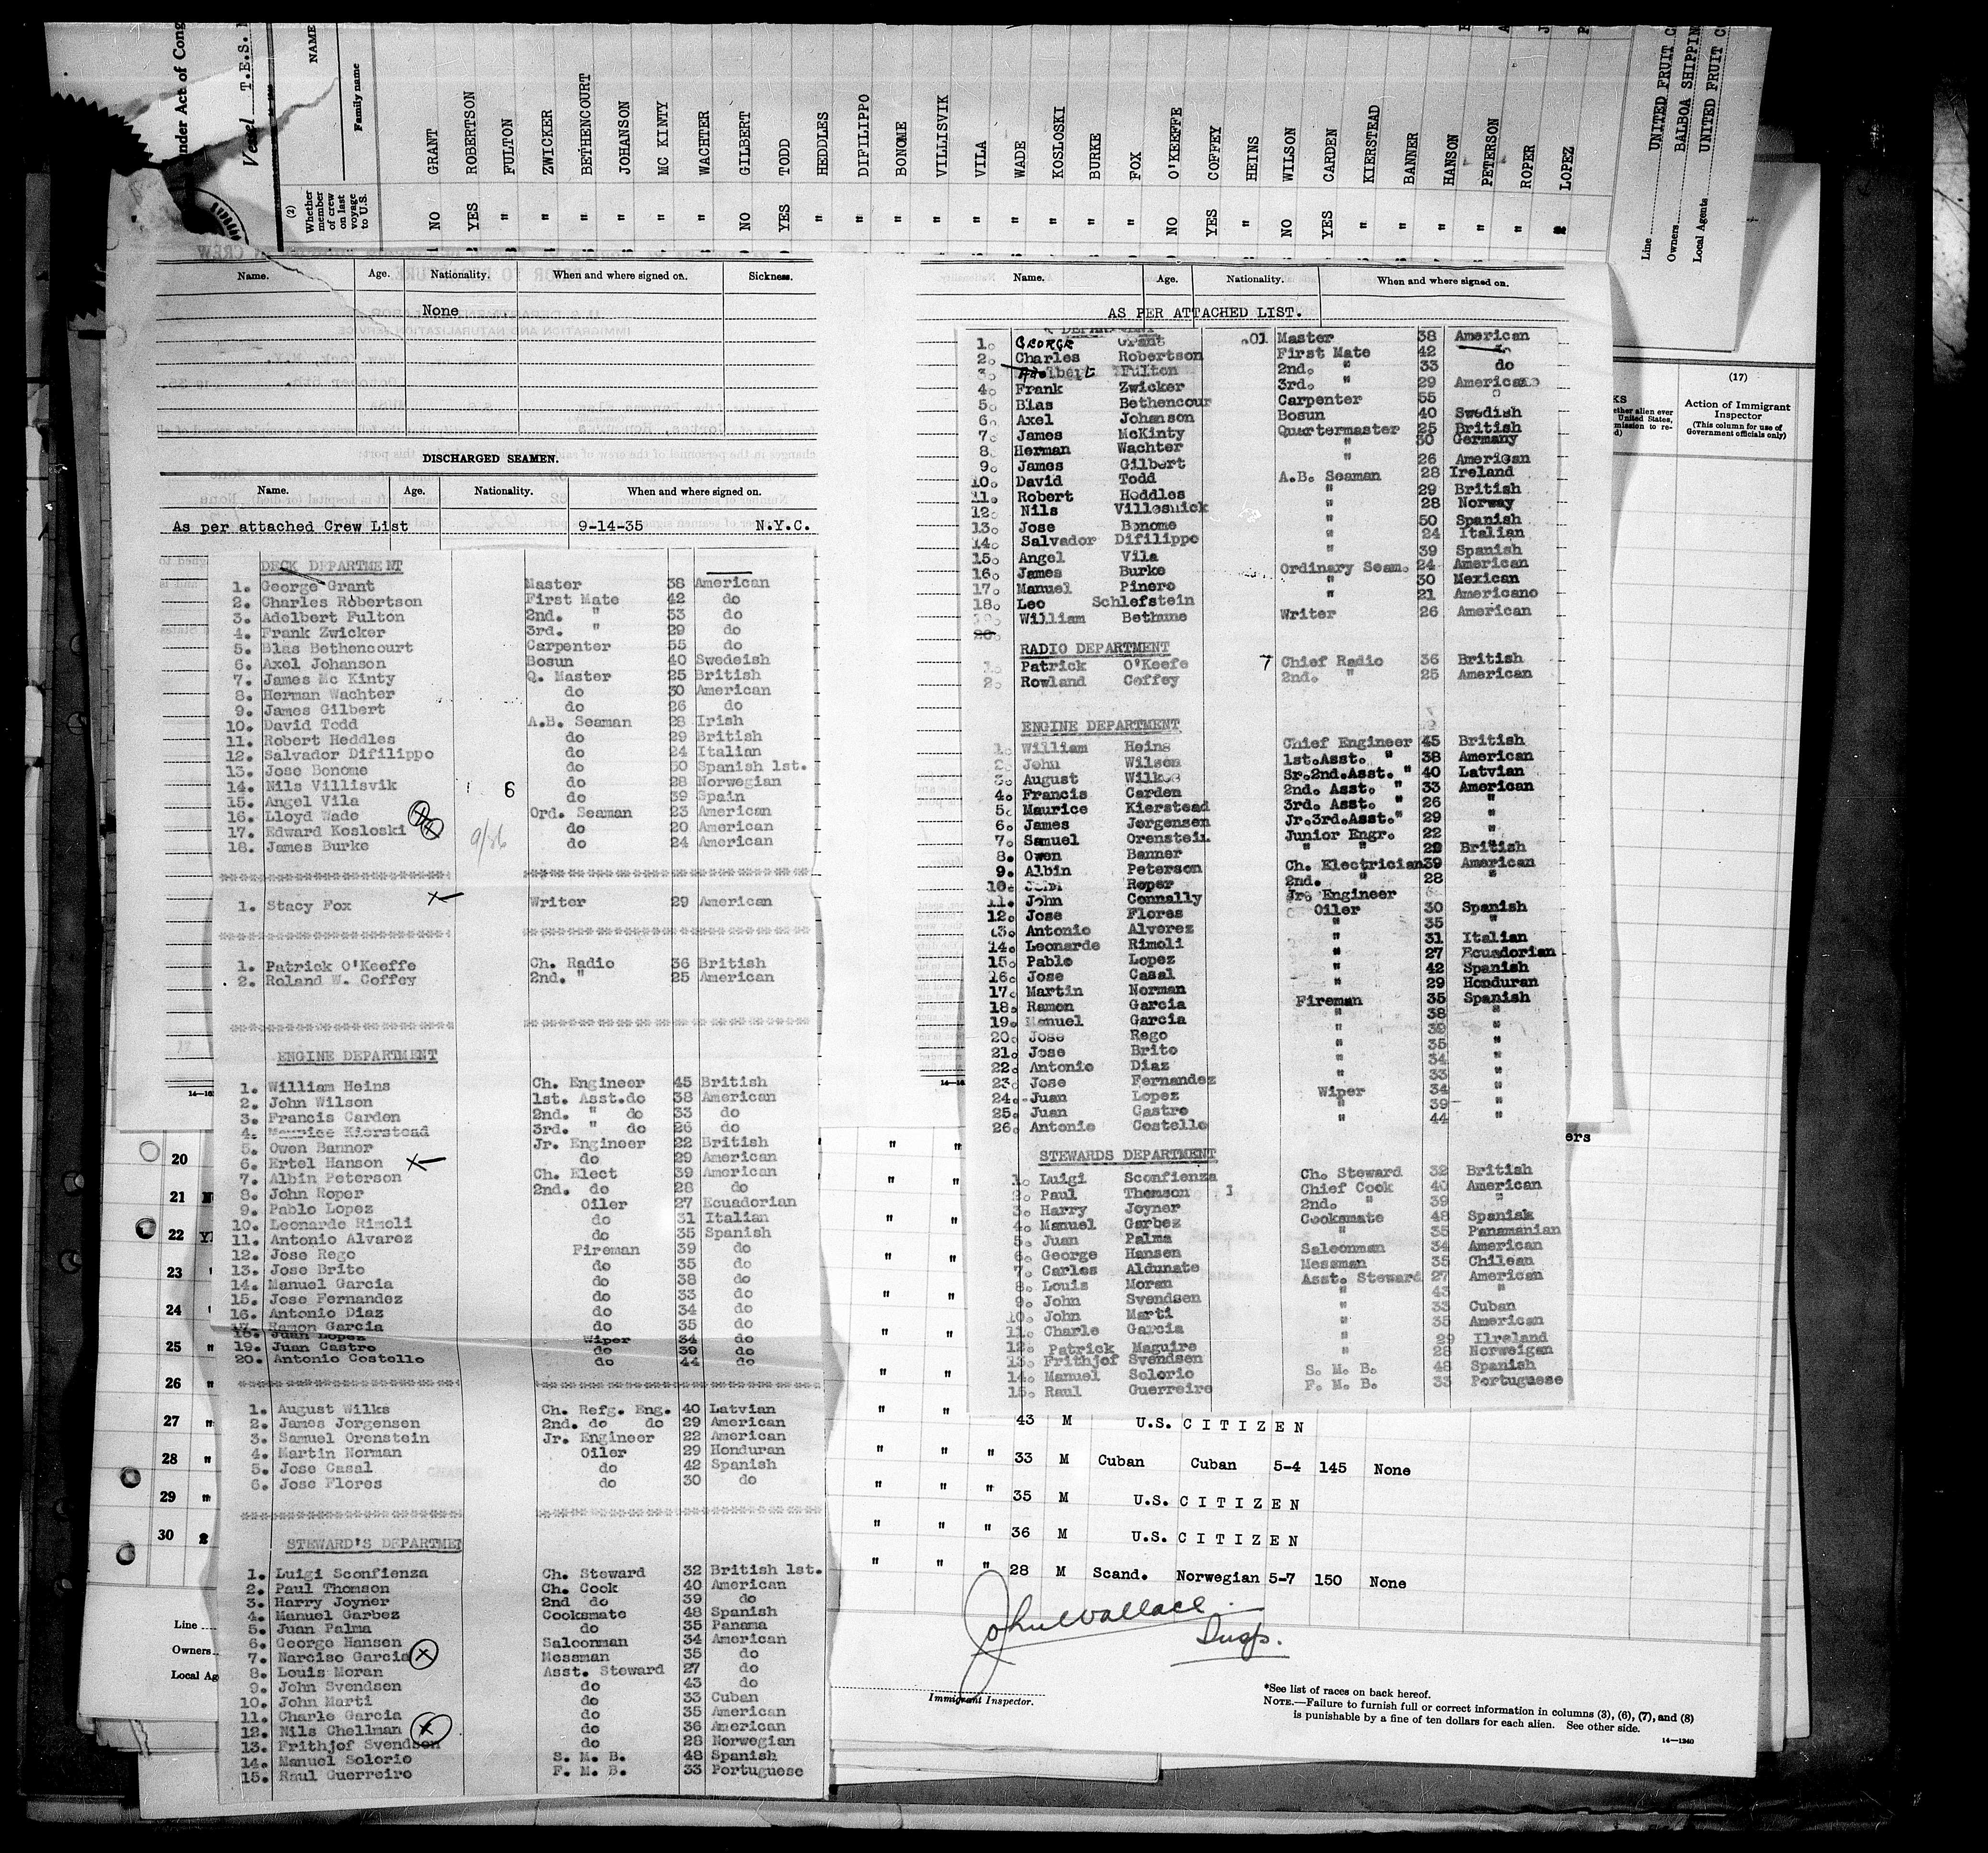 Under Act of Cong
Vessel T.E.S.
NAME
Family name
(2)
Whether member of crew on last voyage to U.S.
NO GRANT
YES ROBERTSON
" FULTON
" ZWICKER
" BETHENCOURT
" JOHANSON
" MC KINTY
" WACHTER
NO GILBERT
YES TODD
" HEDDLES
" DIFILIPPO
" BONOME
" VILLISVIK
" VILA
" WADE
" KOSLOSKI
" BURKE
" FOX
NO O'KEEFFE
YES COFFEY
" HEINS
NO WILSON
YES CARDEN
" KIERSTEAD
" BANNER
" HANSON
" PETERSON
" ROPER
" LOPEZ
Line UNITED FRUIT C
Owners BALBOA SHIPPIN
Local Agents UNITED FRUIT C
Name. Age. Nationality. When and where signed on. Sickness.
None
DISCHARGED SEAMEN.
Name. Age. Nationality. When and where signed on.
As per attached Crew List 9-14-35 N.Y.C.
DECK DEPARTMENT
1. George Grant Master 38 American
2. Charles Robertson First Mate 42 do
3. Adelbert Fulton 2nd. " 33 do
4. Frank Zwicker 3rd. " 29 do
5. Blas Bethencourt Carpenter 55 do
6. Axel Johanson Bosun 40 Swedeish
7. James Mc Kinty Q. Master 25 British
8. Herman Wachter do 30 American
9. James Gilbert do 26 do
10. David Todd A.B. Seaman 28 Irish
11. Robert Heddles do 29 British
12. Salvador Difilippo do 24 Italian
13. Jose Bonome do 50 Spanish 1st.
14. Nils Villisvik 6 do 28 Norwegian
15. Angel Vila do 39 Spain
16. Lloyd Wade Ord. Seaman 23 American
17. Edward Kosloski do 20 American
18. James Burke 9/36 do 24 American
1. Stacy Fox Writer 29 American
1. Patrick O'Keeffe Ch. Radio 36 British
2. Roland W. Coffey 2nd. " 25 American
ENGINE DEPARTMENT
1. William Heins Ch. Engineer 45 British
2. John Wilson 1st. Asst.do 38 American
3. Francis Carden 2nd. " do 33 do
4. Maurice Kierstead 3rd. " do 26 do
5. Owen Banner Jr. Engineer 22 British
6. Ertel Hanson do 29 American
7. Albin Peterson Ch. Elect 39 American
8. John Roper 2nd. do 28 do
9. Pablo Lopez Oiler 27 Ecuadorian
10. Leonardo Rimoli do 31 Italian
11. Antonio Alvarez do 35 Spanish
12. Jose Rego Fireman 39 do
13. Jose Brito do 35 do
14. Manuel Garcia do 38 do
15. Jose Fernandez do 33 do
16. Antonio Diaz do 34 do
17. Ramon Garcia do 35 do
18. Juan Lopez Wiper 34 do
19. Juan Castro do 39 do
20. Antonio Costello do 44 do
1. August Wilks Ch. Refg. Eng. 40 Latvian
2. James Jorgensen 2nd. do do 29 American
3. Samuel Orenstein Jr. Engineer 22 American
4. Martin Norman Oiler 29 Honduran
5. Jose Casal do 42 Spanish
6. Jose Flores do 30 do
STEWARD'S DEPARTMEN
1. Luigi Sconfienza Ch. Steward 32 British 1st.
2. Paul Thomson Ch. Cook 40 American
3. Harry Joyner 2nd do 39 do
4. Manuel Garbez Cooksmate 48 Spanish
5. Juan Palma do 35 Panama
6. George Hansen Saloonman 34 American
7. Narciso Garcia Messman 35 do
8. Louis Moran Asst. Steward 27 do
9. John Svendsen do 43 do
10. John Marti do 33 Cuban
11. Charle Garcia do 35 American
12. Nils Chellman do 36 American
13. Frithjof Svendsen do 28 Norwegian
14. Manuel Solorio S. M. B. 48 Spanish
15. Raul Guerreiro F. M. B. 33 Portuguese
Name. Age. Nationality. When and where signed on.
AS PER ATTACHED LIST.
1. GEORGE Grant .01 Master 38 American
2. Charles Robertson First Mate 42 do
3. Adelbert Fulton 2nd. " 33 do
4. Frank Zwicker 3rd. " 29 American
5. Blas Bethencour Carpenter 55 "
6. Axel Johanson Bosun 40 Swedish
7. James McKinty Quartermaster 25 British
8. Herman Wachter " 30 Germany
9. James Gilbert " 26 American
10. David Todd A.B. Seaman 28 Ireland
11. Robert Heddles " 29 British
12. Nils Villesnick " 28 Norway
13. Jose Bonome " 50 Spanish
14. Salvador Difilippo " 24 Italian
15. Angel Vila " 39 Spanish
16. James Burke Ordinary Seam. 24 American
17. Manuel Pinero " 30 Mexican
18. Leo Schlefstein " 21 Americano
William Bethune Writer 26 American
20.
RADIO DEPARTMENT
1. Patrick O'Keefe 7 Chief Radio 36 British
2. Rowland Coffey 2nd. " 25 American
ENGINE DEPARTMENT
1. William Heins Chief Engineer 45 British
2. John Wilson 1st.Asst. " 38 American
3. August Wilkos Sr.2nd.Asst. " 40 Latvian
4. Francis Carden 2nd. Asst. " 33 American
5. Maurice Kierstead 3rd. Asst. " 26 "
6. James Jorgensen Jr.3rd.Asst." 29 "
7. Samuel Orenstein Junior Engr. 22 "
8. Owen Banner " " 22 British
9. Albin Peterson Ch. Electrician 39 American
10. John Roper 2nd. " 28 "
11. John Connally Jr. Engineer
12. Jose Flores Oiler 30 Spanish
13. Antonio Alverez " 35 "
14. Leonarde Rimoli " 31 Italian
15. Pablo Lopez " 27 Ecuadorian
16. Jose Casal " 42 Spanish
17. Martin Norman " 29 Honduran
18. Ramon Garcia Fireman 35 Spanish
19. Manuel Garcia " 38 "
20. Jose Rego " 39 "
21. Jose Brito " 35 "
22. Antonio Diaz " 34 "
23. Jose Fernandez " 33 "
24. Juan Lopez Wiper 34 "
25. Juan Castro " 39 "
26. Antonio Costello " 44 "
STEWARDS DEPARTMENT
1. Luigi Sconfienza Ch. Steward 32 British
2. Paul Thomson Chief Cook 40 American
3. Harry Joyner 2nd. " 39 "
4. Manuel Garbez Cooksmate 48 Spanish
5. Juan Palma " 35 Panamanian
6. George Hansen Saloonman 34 American
7. Carlos Aldunate Messman 35 Chilean
8. Louis Moran Asst. Steward 27 American
9. John Svendsen " 43 "
10. John Marti " 33 Cuban
11. Charle Garcia " 35 American
12. Patrick Maguire " 29 Ilreland
13. Frithjof Svendsen " 28 Norweigan
14. Manuel Solorio S. M. B. 48 Spanish
15. Raul Guerreiro F. M. B. 33 Portuguese
(17)
Action of Immigrant Inspector
(This column for use of Government officials only)
20
21
22
23
24
25
26
27
28
29
30
43 M U.S. CITIZEN
33 M Cuban Cuban 5-4 145 None
35 M U.S. CITIZEN
36 M U.S. CITIZEN
28 M Scand. Norwegian 5-7 150 None
John Wallace
Insp.
Immigrant Inspector.
Line
Owners
Local Ag
*See list of races on back hereof.
NOTE.—Failure to furnish full or correct information in columns (3), (6), (7), and (8)
is punishable by a fine of ten dollars for each alien. See other side.
14—1240